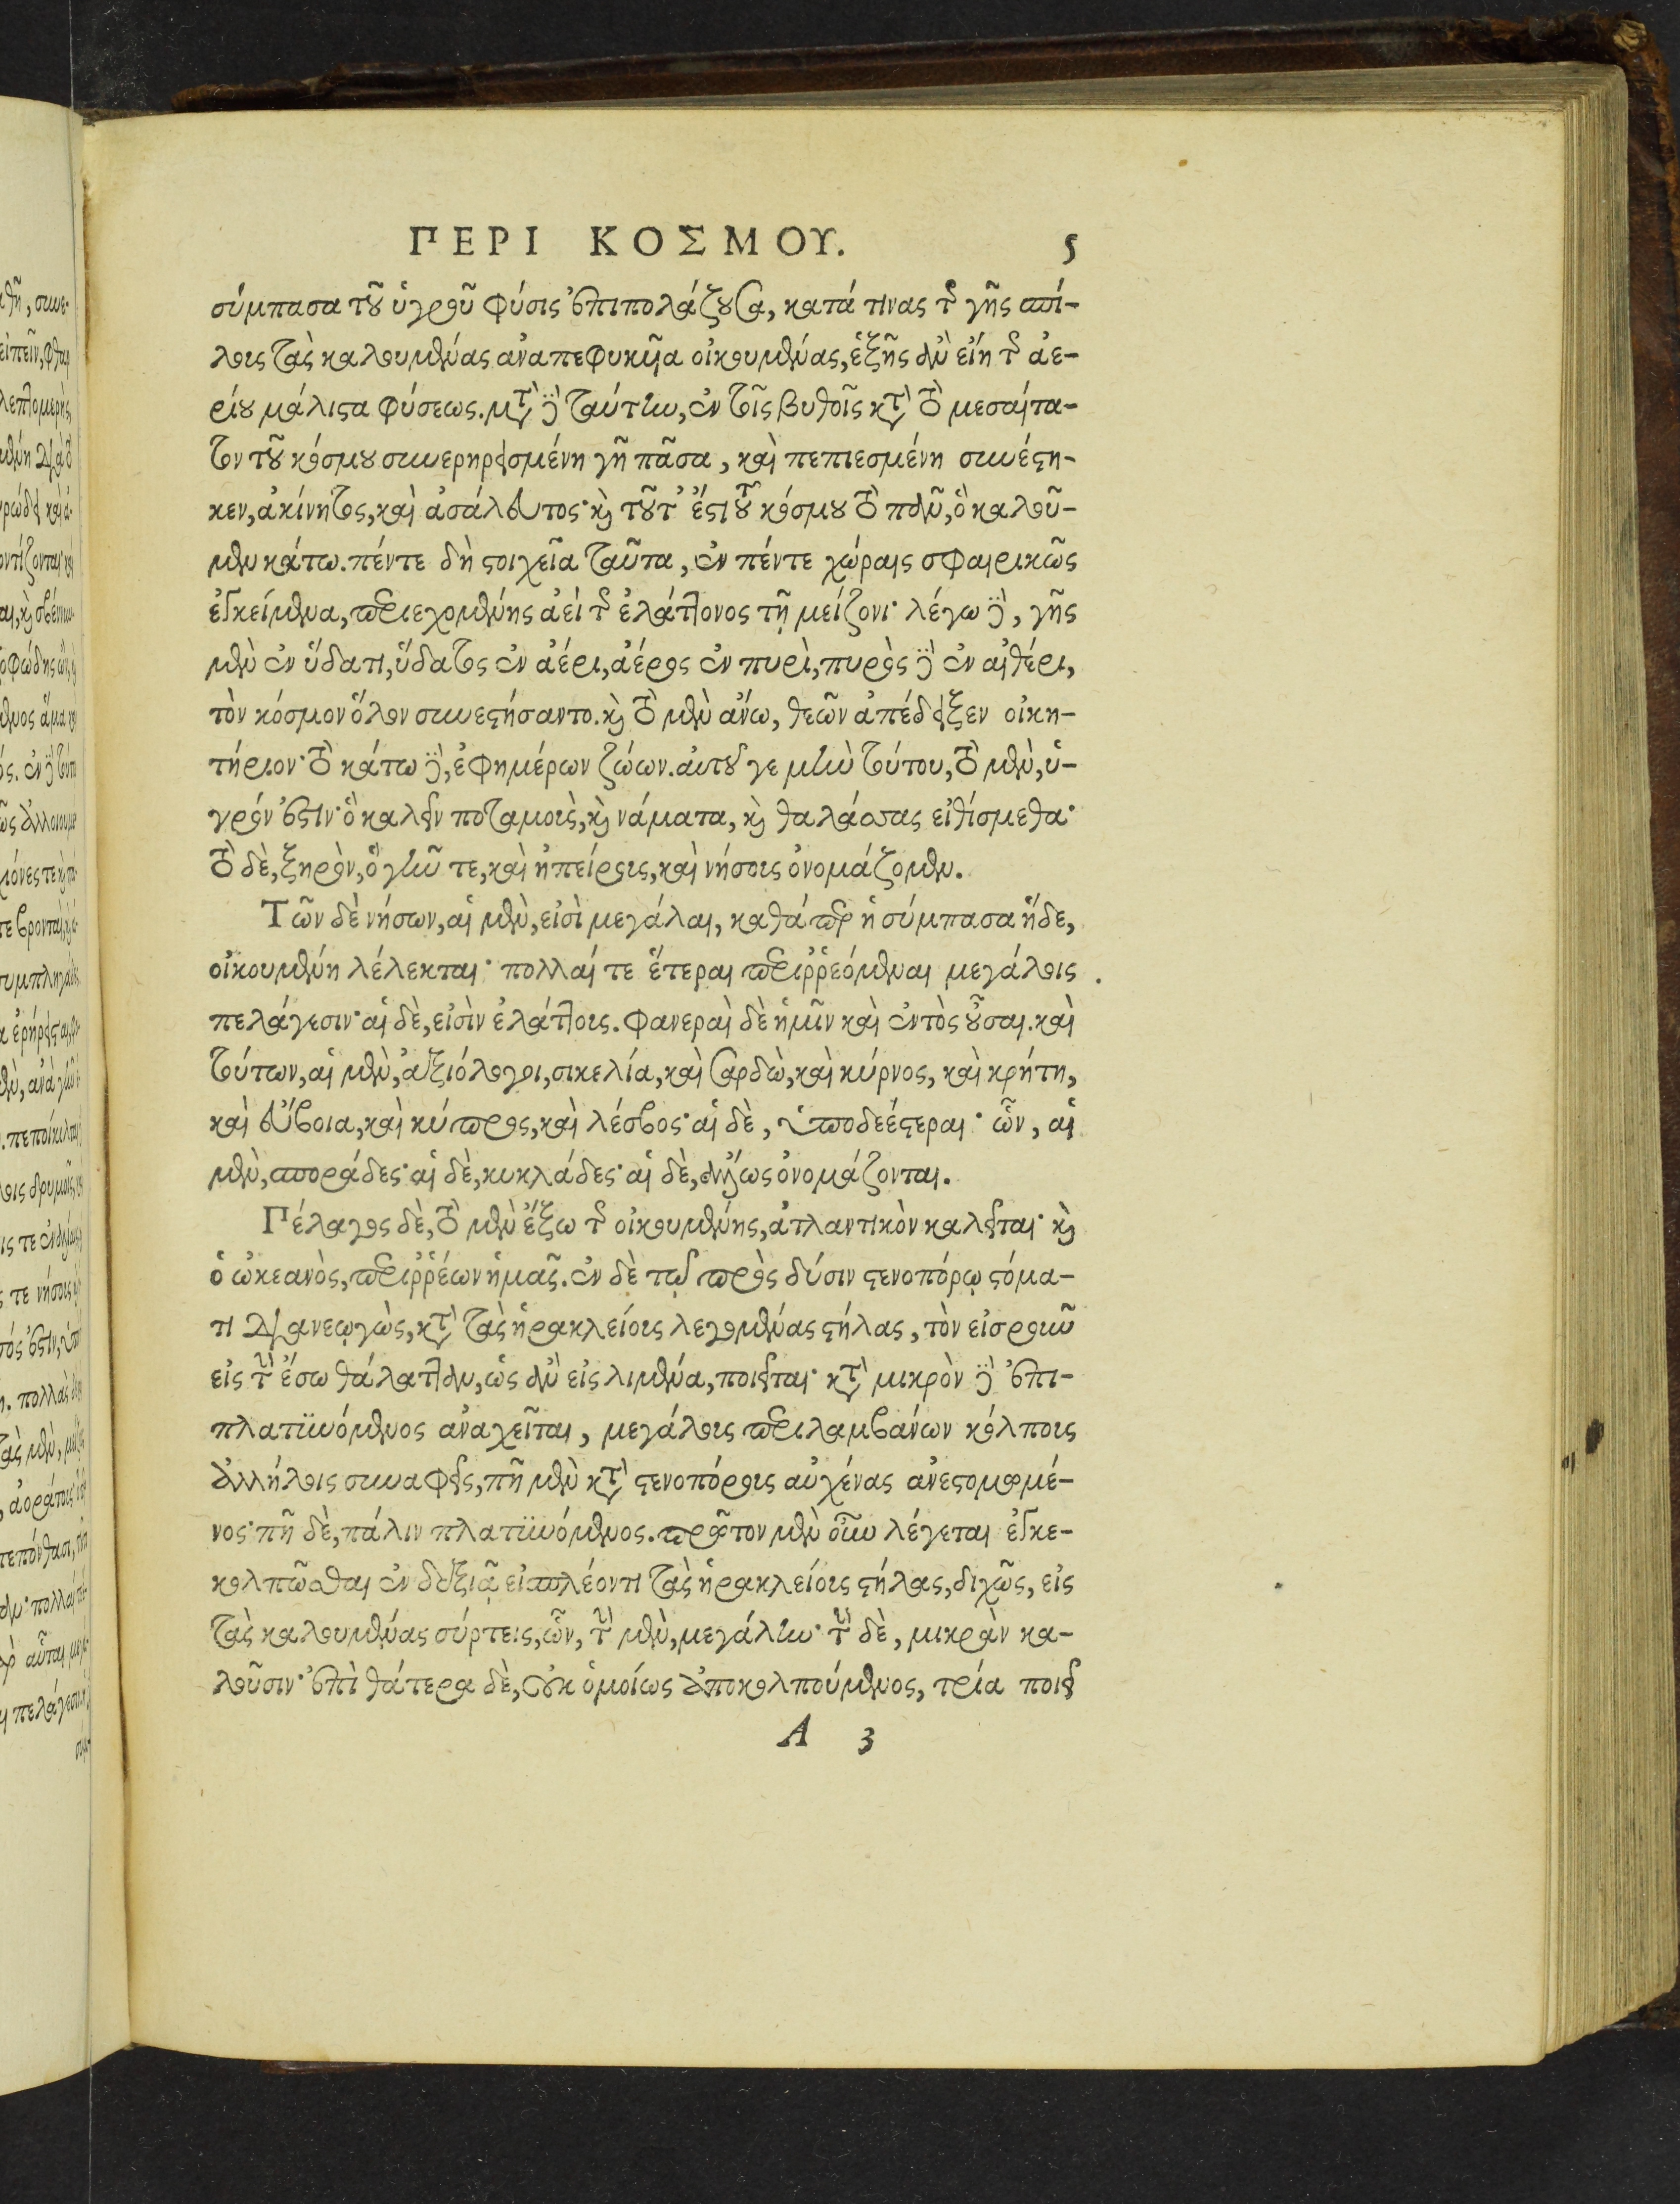 ΠΕΡΙ ΚΟΣΜΟΥ. 5
σύμπασα τοῦ ὑγροῦ φύσις ἐπιπολάζουσα, κατά τινας τῆς γῆς σπί-
λοις τὰς καλουμένας ἀναπεφυκῖα οἰκουμένας, ἑξῆς ἂν εἴη τῆς ἀε-
ρίου μάλιστα φύσεως. μετὰ δὲ ταύτην, ἐν τοῖς βυθοῖς κατὰ τὸ μεσαίτα-
τον τοῦ κόσμου συνερηρεισμένη γῆ πᾶσα, καὶ πεπιεσμένη συνέστη-
κεν, ἀκίνητος, καὶ ἀσάλευτος· καὶ τοῦτ' ἔστι τοῦ κόσμου τὸ πᾶν, ὃ καλοῦ-
μεν κάτω. πέντε δὴ στοιχεῖα ταῦτα, ἐν πέντε χώραις σφαιρικῶς
ἐγκείμενα, περιεχομένης ἀεὶ τῆς ἐλάττονος τῇ μείζονι· λέγω δὲ, γῆς
μὲν ἐν ὕδατι, ὕδατος ἐν ἀέρι, ἀέρος ἐν πυρὶ, πυρὸς δὲ ἐν αἰθέρι,
τὸν κόσμον ὅλον συνεστήσαντο. καὶ τὸ μὲν ἄνω, θεῶν ἀπέδειξεν οἰκη-
τήριον· τὸ κάτω δὲ, ἐφημέρων ζώων. αὐτοῦ γε μὴν τούτου, τὸ μὲν, ὑ-
γρόν ἐστιν· ὃ καλεῖν ποταμοὺς, καὶ νάματα, καὶ θαλάσσας εἰθίσμεθα·
τὸ δὲ, ξηρὸν, ὃ γῆν τε, καὶ ἠπείρους, καὶ νήσους ὀνομάζομεν.
Τῶν δὲ νήσων, αἱ μὲν, εἰσὶ μεγάλαι, καθάπερ ἡ σύμπασα ἥδε,
οἰκουμένη λέλεκται· πολλαί τε ἕτεραι περιῤῥεόμεναι μεγάλοις
πελάγεσιν· αἱ δὲ, εἰσὶν ἐλάττους. φανεραὶ δὲ ἡμῖν καὶ ἐντὸς οὖσαι. καὶ
τούτων, αἱ μὲν, ἀξιόλογοι, σικελία, καὶ σαρδὼ, καὶ κύρνος, καὶ κρήτη,
καὶ εὔβοια, καὶ κύπρος, καὶ λέσβος· αἱ δὲ, ὑποδεέστεραι· ὧν, αἱ
μὲν, σποράδες· αἱ δὲ, κυκλάδες· αἱ δὲ, ἄλλως ὀνομάζονται.
Πέλαγος δὲ, τὸ μὲν ἔξω τῆς οἰκουμένης, ἀτλαντικὸν καλεῖται· καὶ
ὁ ὠκεανὸς, περιῤῥέων ἡμᾶς. ἐν δὲ τῷ πρὸς δύσιν στενοπόρῳ στόμα-
τι διανεῳγὼς, κατὰ τὰς ἡρακλείους λεγομένας στήλας, τὸν εἰσροῦν
εἰς τὴν ἔσω θάλατταν, ὡς ἂν εἰς λιμένα, ποιεῖται· κατὰ μικρὸν δὲ ἐπι-
πλατϋνόμενος ἀναχεῖται, μεγάλους περιλαμβάνων κόλπους
ἀλλήλοις συναφεῖς, πῆ μὲν κατὰ στενοπόρους αὐχένας ἀνεστομωμέ-
νος· πῆ δὲ, πάλιν πλατϋνόμενος. πρῶτον μὲν οὖν λέγεται ἐγκε-
κολπῶσθαι ἐν δεξιᾷ εἰσπλέοντι τὰς ἡρακλείους στήλας, διχῶς, εἰς
τὰς καλουμένας σύρτεις, ὧν, τὴν μὲν, μεγάλην· τὴν δὲ, μικρὰν κα-
λοῦσιν· ἐπὶ θάτερα δὲ, οὐκ ὁμοίως ἀποκολπούμενος, τρία ποιεῖ
A 3